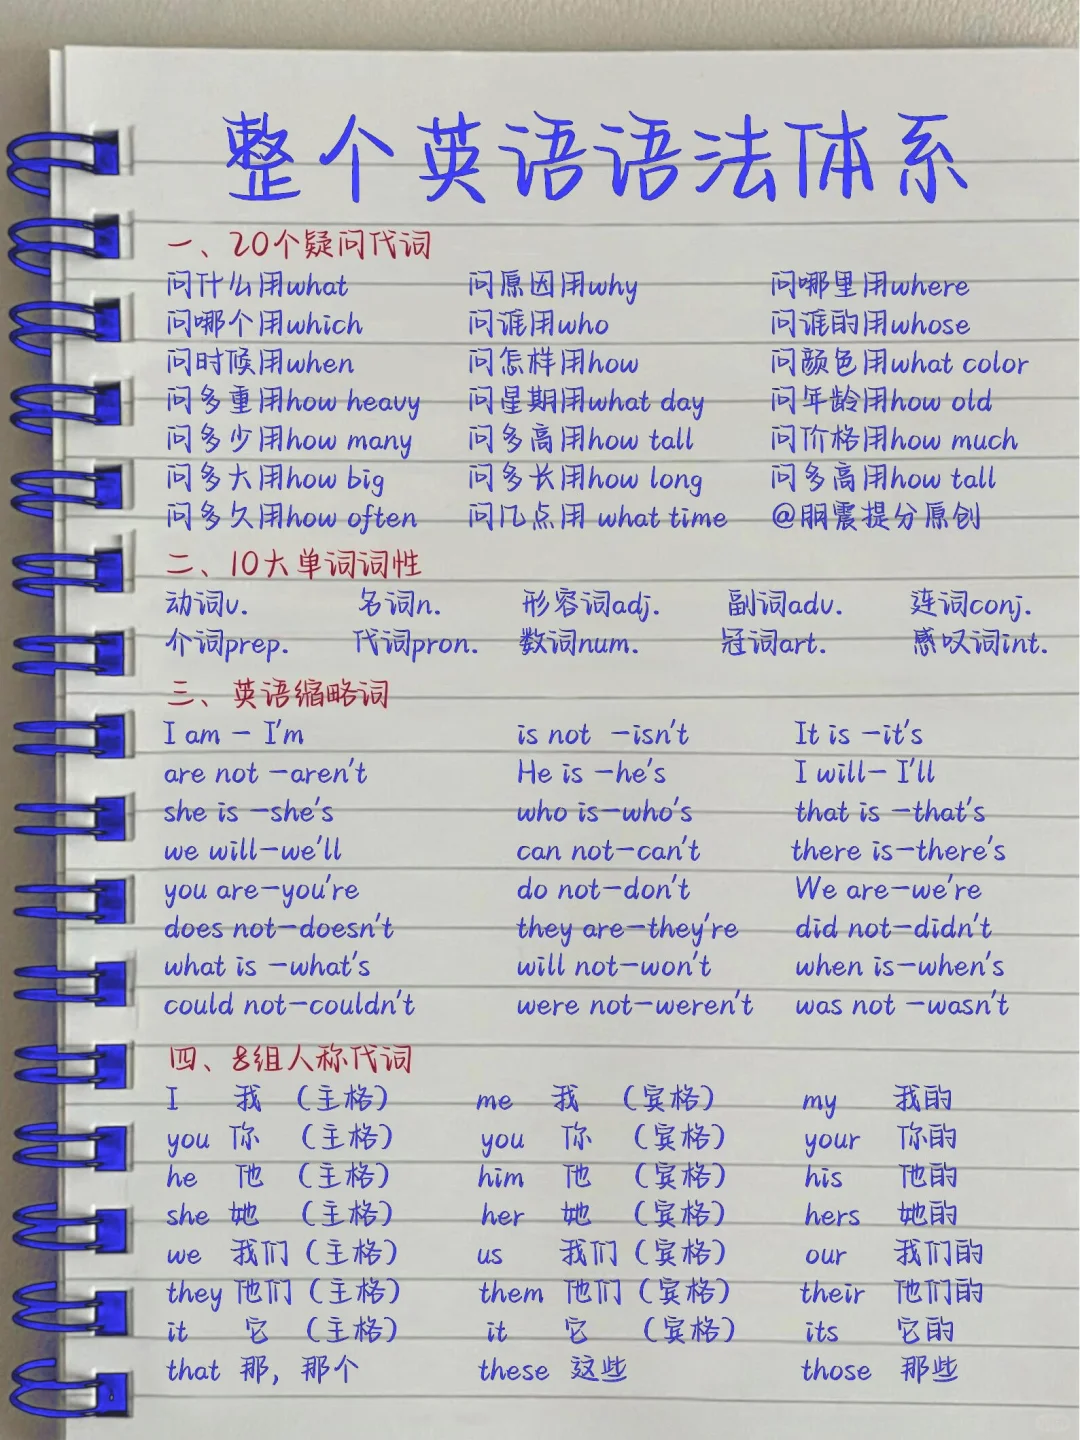 整个英语语法体系
一、20个疑问代词
问什么用what 问原因用why 问哪里用where
问哪个用which 问谁用who 问谁的用whose
问时候用when 问怎样用how 问颜色用what color
问多重用how heavy 问星期用what day 问年龄用how old
问多少用how many 问多高用how tall 问价格用how much
问多大用how big 问多长用how long 问多高用how tall
问多久用how often 问几点用 what time @朋震提分原创
二、10大单词词性
动词v. 名词n. 形容词adj. 副词adv. 连词conj.
介词prep. 代词pron. 数词num. 冠词art. 感叹词int.
三、英语缩略词
I am - I'm is not -isn't It is -it's
are not -aren't He is -he's I will- I'll
she is -she's who is-who's that is -that's
we will-we'll can not-can't there is-there's
you are-you're do not-don't We are-we're
does not-doesn't they are-they're did not-didn't
what is -what's will not-won't when is-when's
could not-couldn't were not-weren't was not -wasn't
四、8组人称代词
I 我 (主格) me 我 (宾格) my 我的
you 你 (主格) you 你 (宾格) your 你的
he 他 (主格) him 他 (宾格) his 他的
she 她 (主格) her 她 (宾格) hers 她的
we 我们 (主格) us 我们 (宾格) our 我们的
they 他们 (主格) them 他们 (宾格) their 他们的
it 它 (主格) it 它 (宾格) its 它的
that 那, 那个 these 这些 those 那些